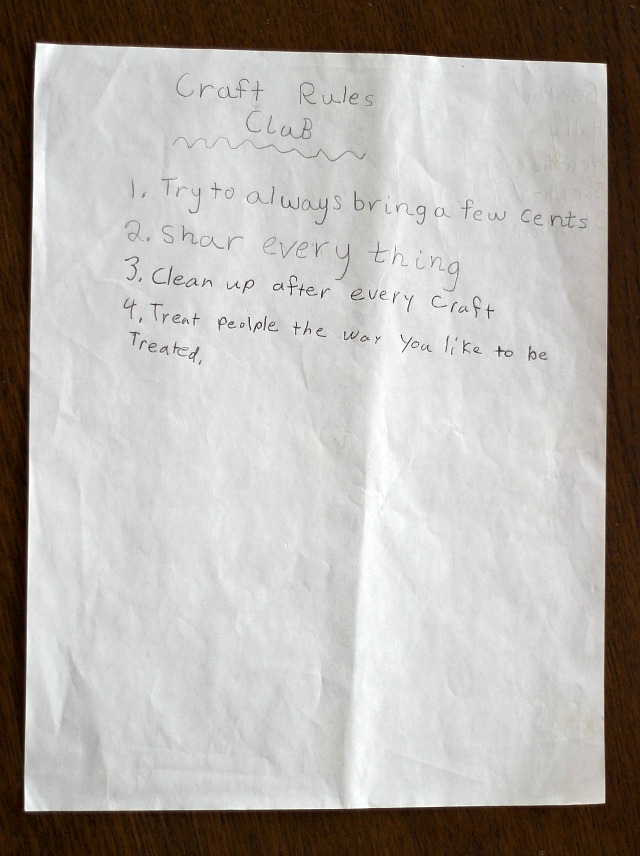 Craft Rules
CluB
1. Try to always bring a few cents
2. Shar every thing
3. Clean up after every craft
4. Treat peolple the way you like to be
Treated.